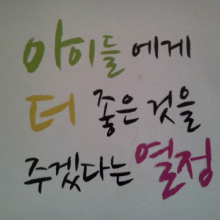 아이들에게
더 좋은 것을
주겠다는 열정